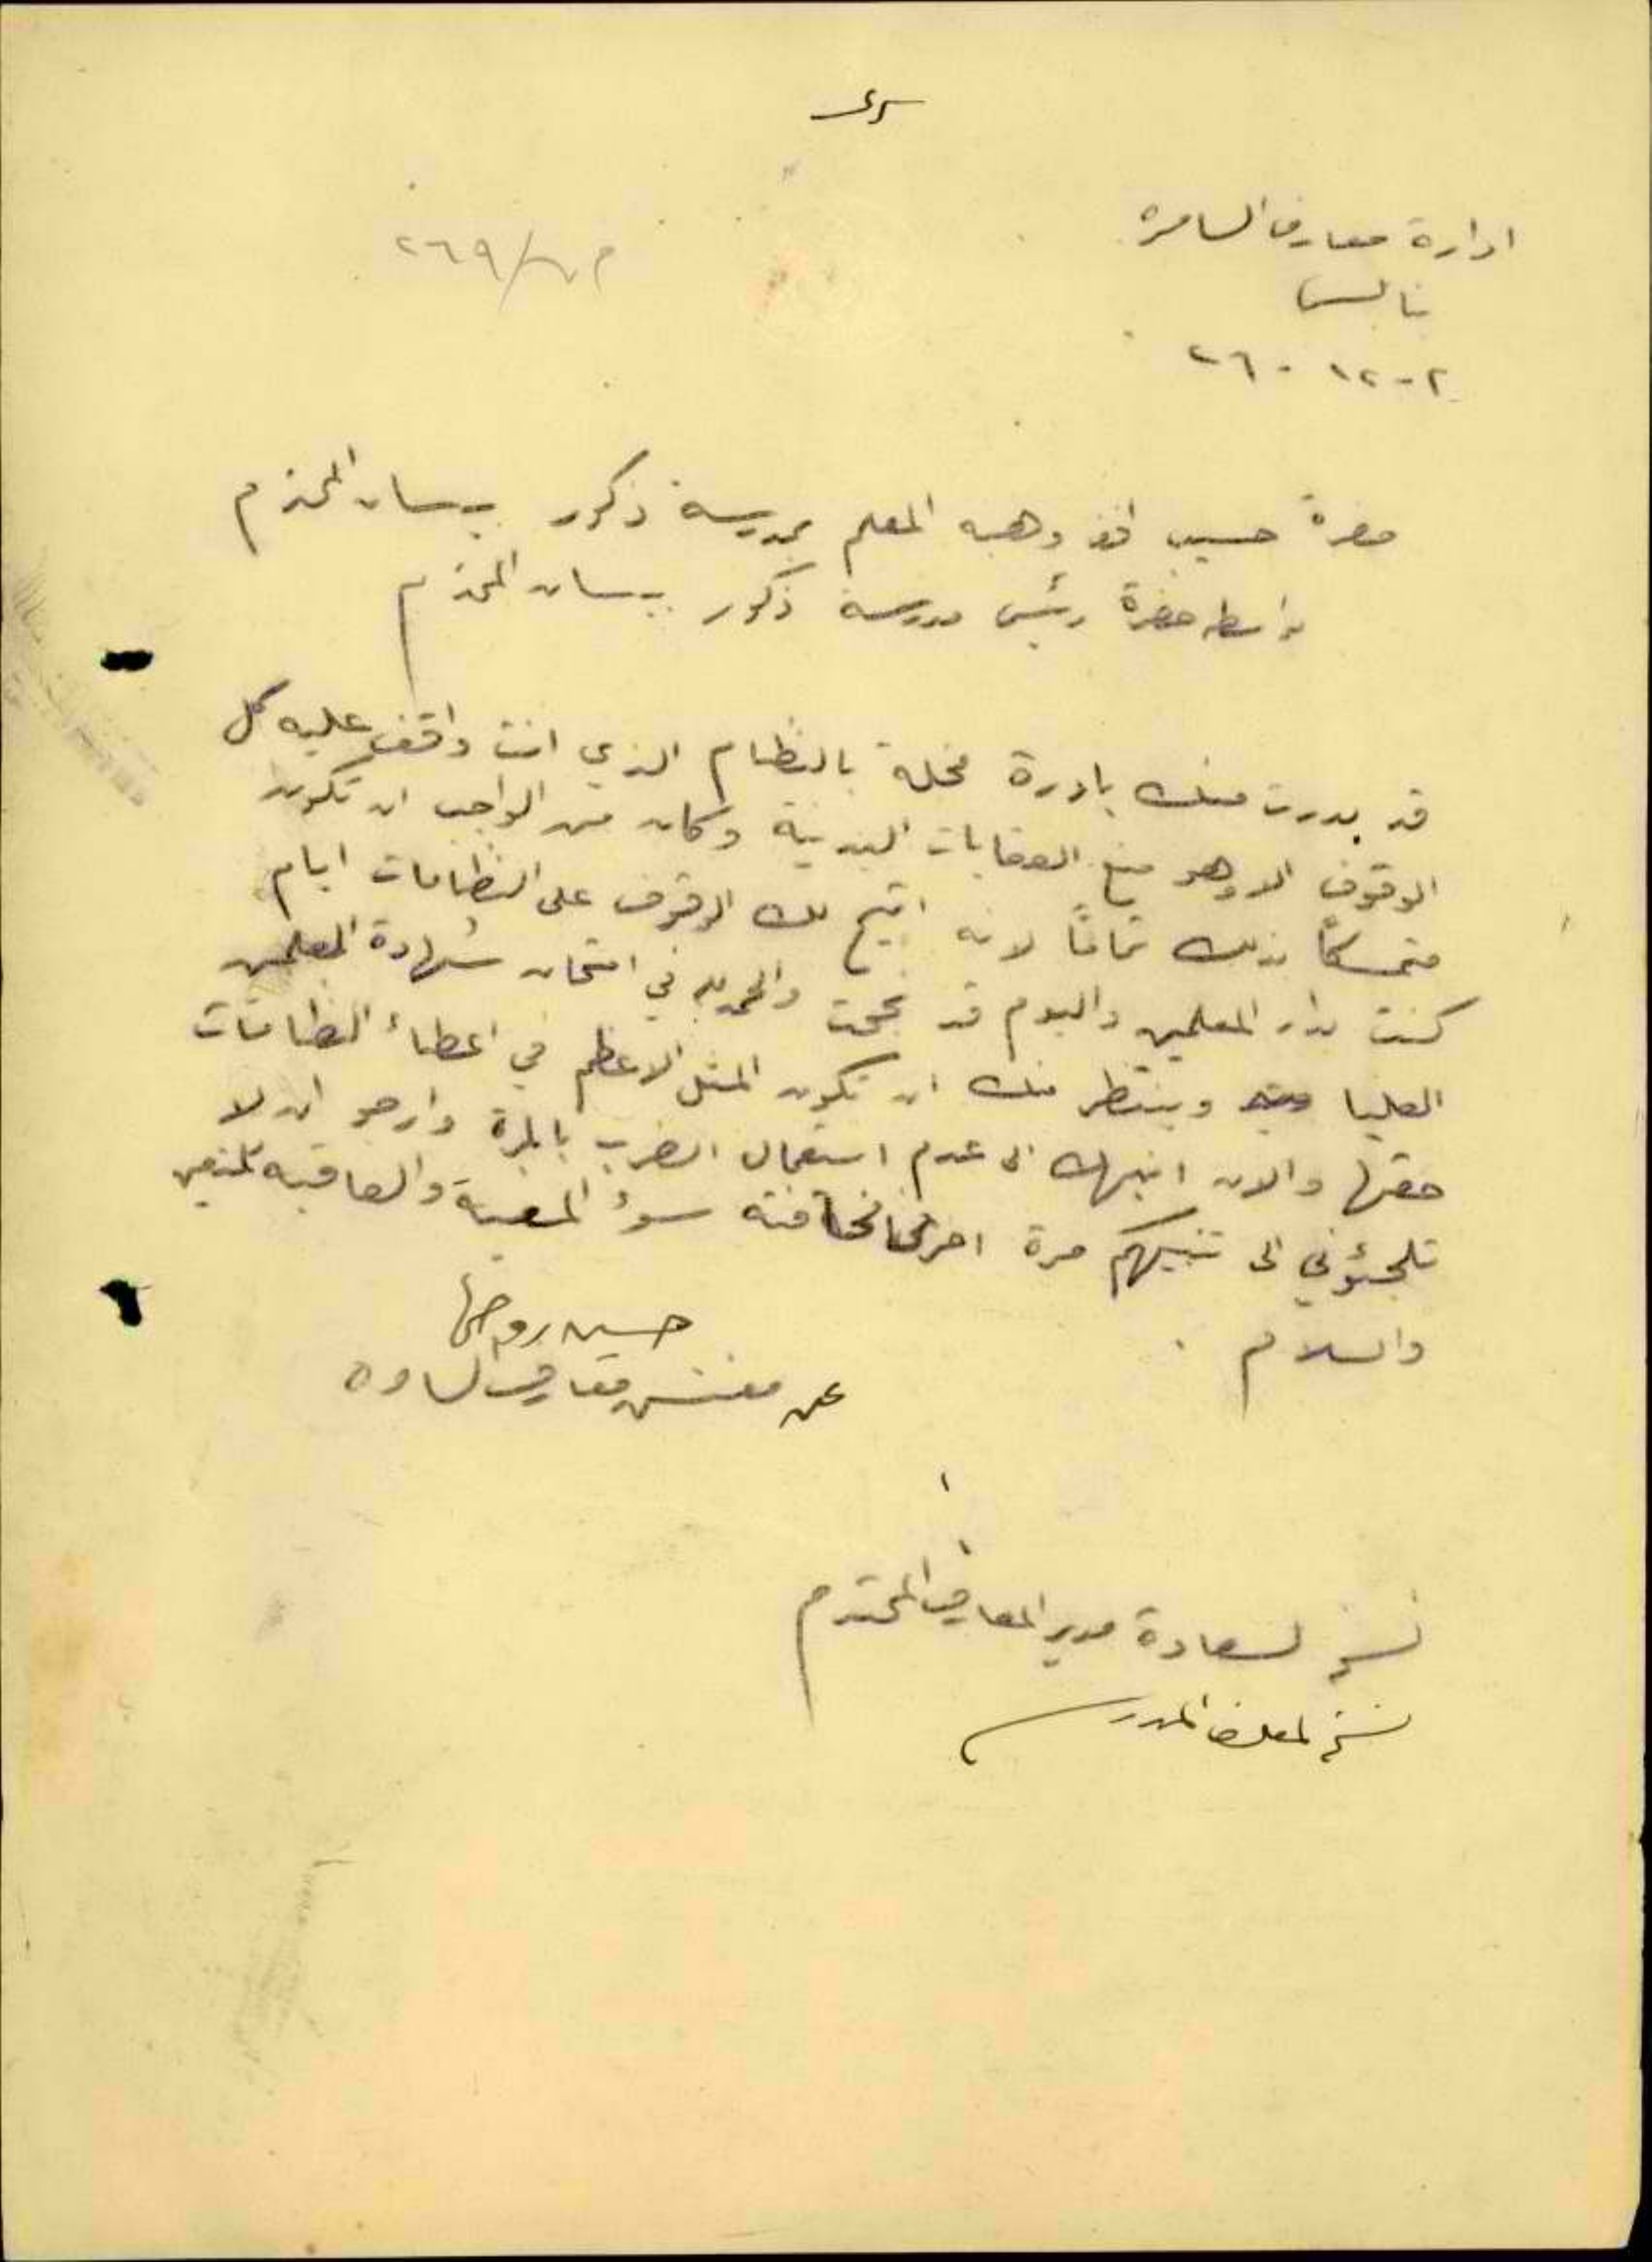 سري
ادارة معارف السامرة
نابلس
٢-١٢-٢٦
م ٧/٢٦٩
حضرة حسيب افندي وهبه المعلم بمدرسة ذكور بيسان المحترم
بواسطة حضرة رئيس مدرسة ذكور بيسان المحترم
قد بدرت منك بادرة مخلة بالنظام الذي انت واقف عليه كل
الوقوف الا وهو منع العقابات البدنية وكان من الواجب ان تكون
متمسكاً بذلك تماماً لانه اتيح لك الوقوف على النظامات ايام
كنت بدار المعلمين واليوم قد نجحت والحمد لله في امتحان شهادة المعلمين
العليا وينتظر منك ان تكون المثل الاعظم في اعطاء النظامات
حقها والان انبهك الى عدم استعمال الضرب بالمرة وارجو ان لا
تلجئوني الى تنبيهكم مرة اخرى مخافة سوء المغبة والعاقبة للمتقين
والسلام
حسين روحي
عن مفتش معارف السامرة
نسخة لسعادة مدير المعارف المحترم
نسخة لملف المدرسة